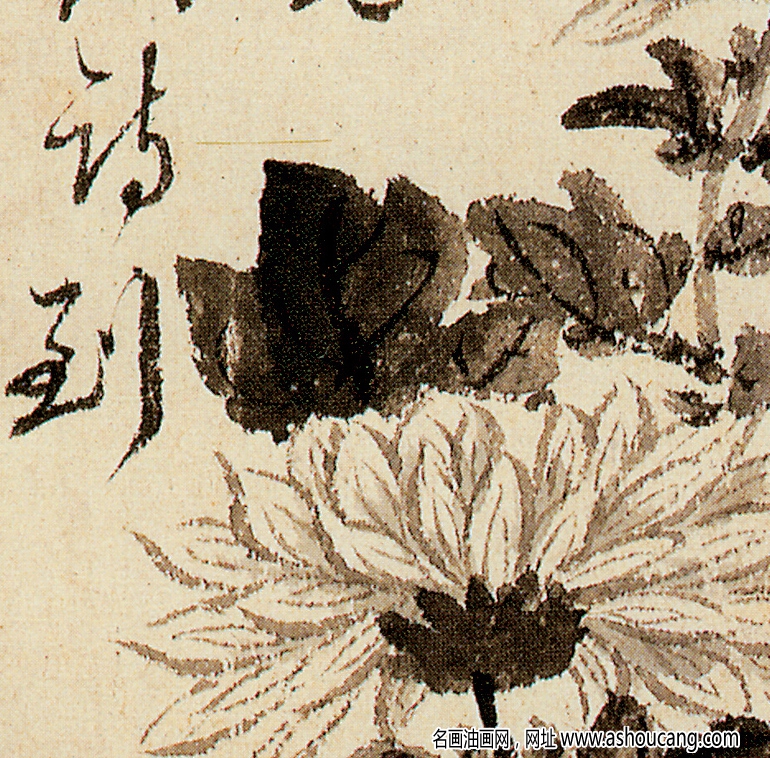 诗
到
名画油画网，网址 www.ashoucang.com